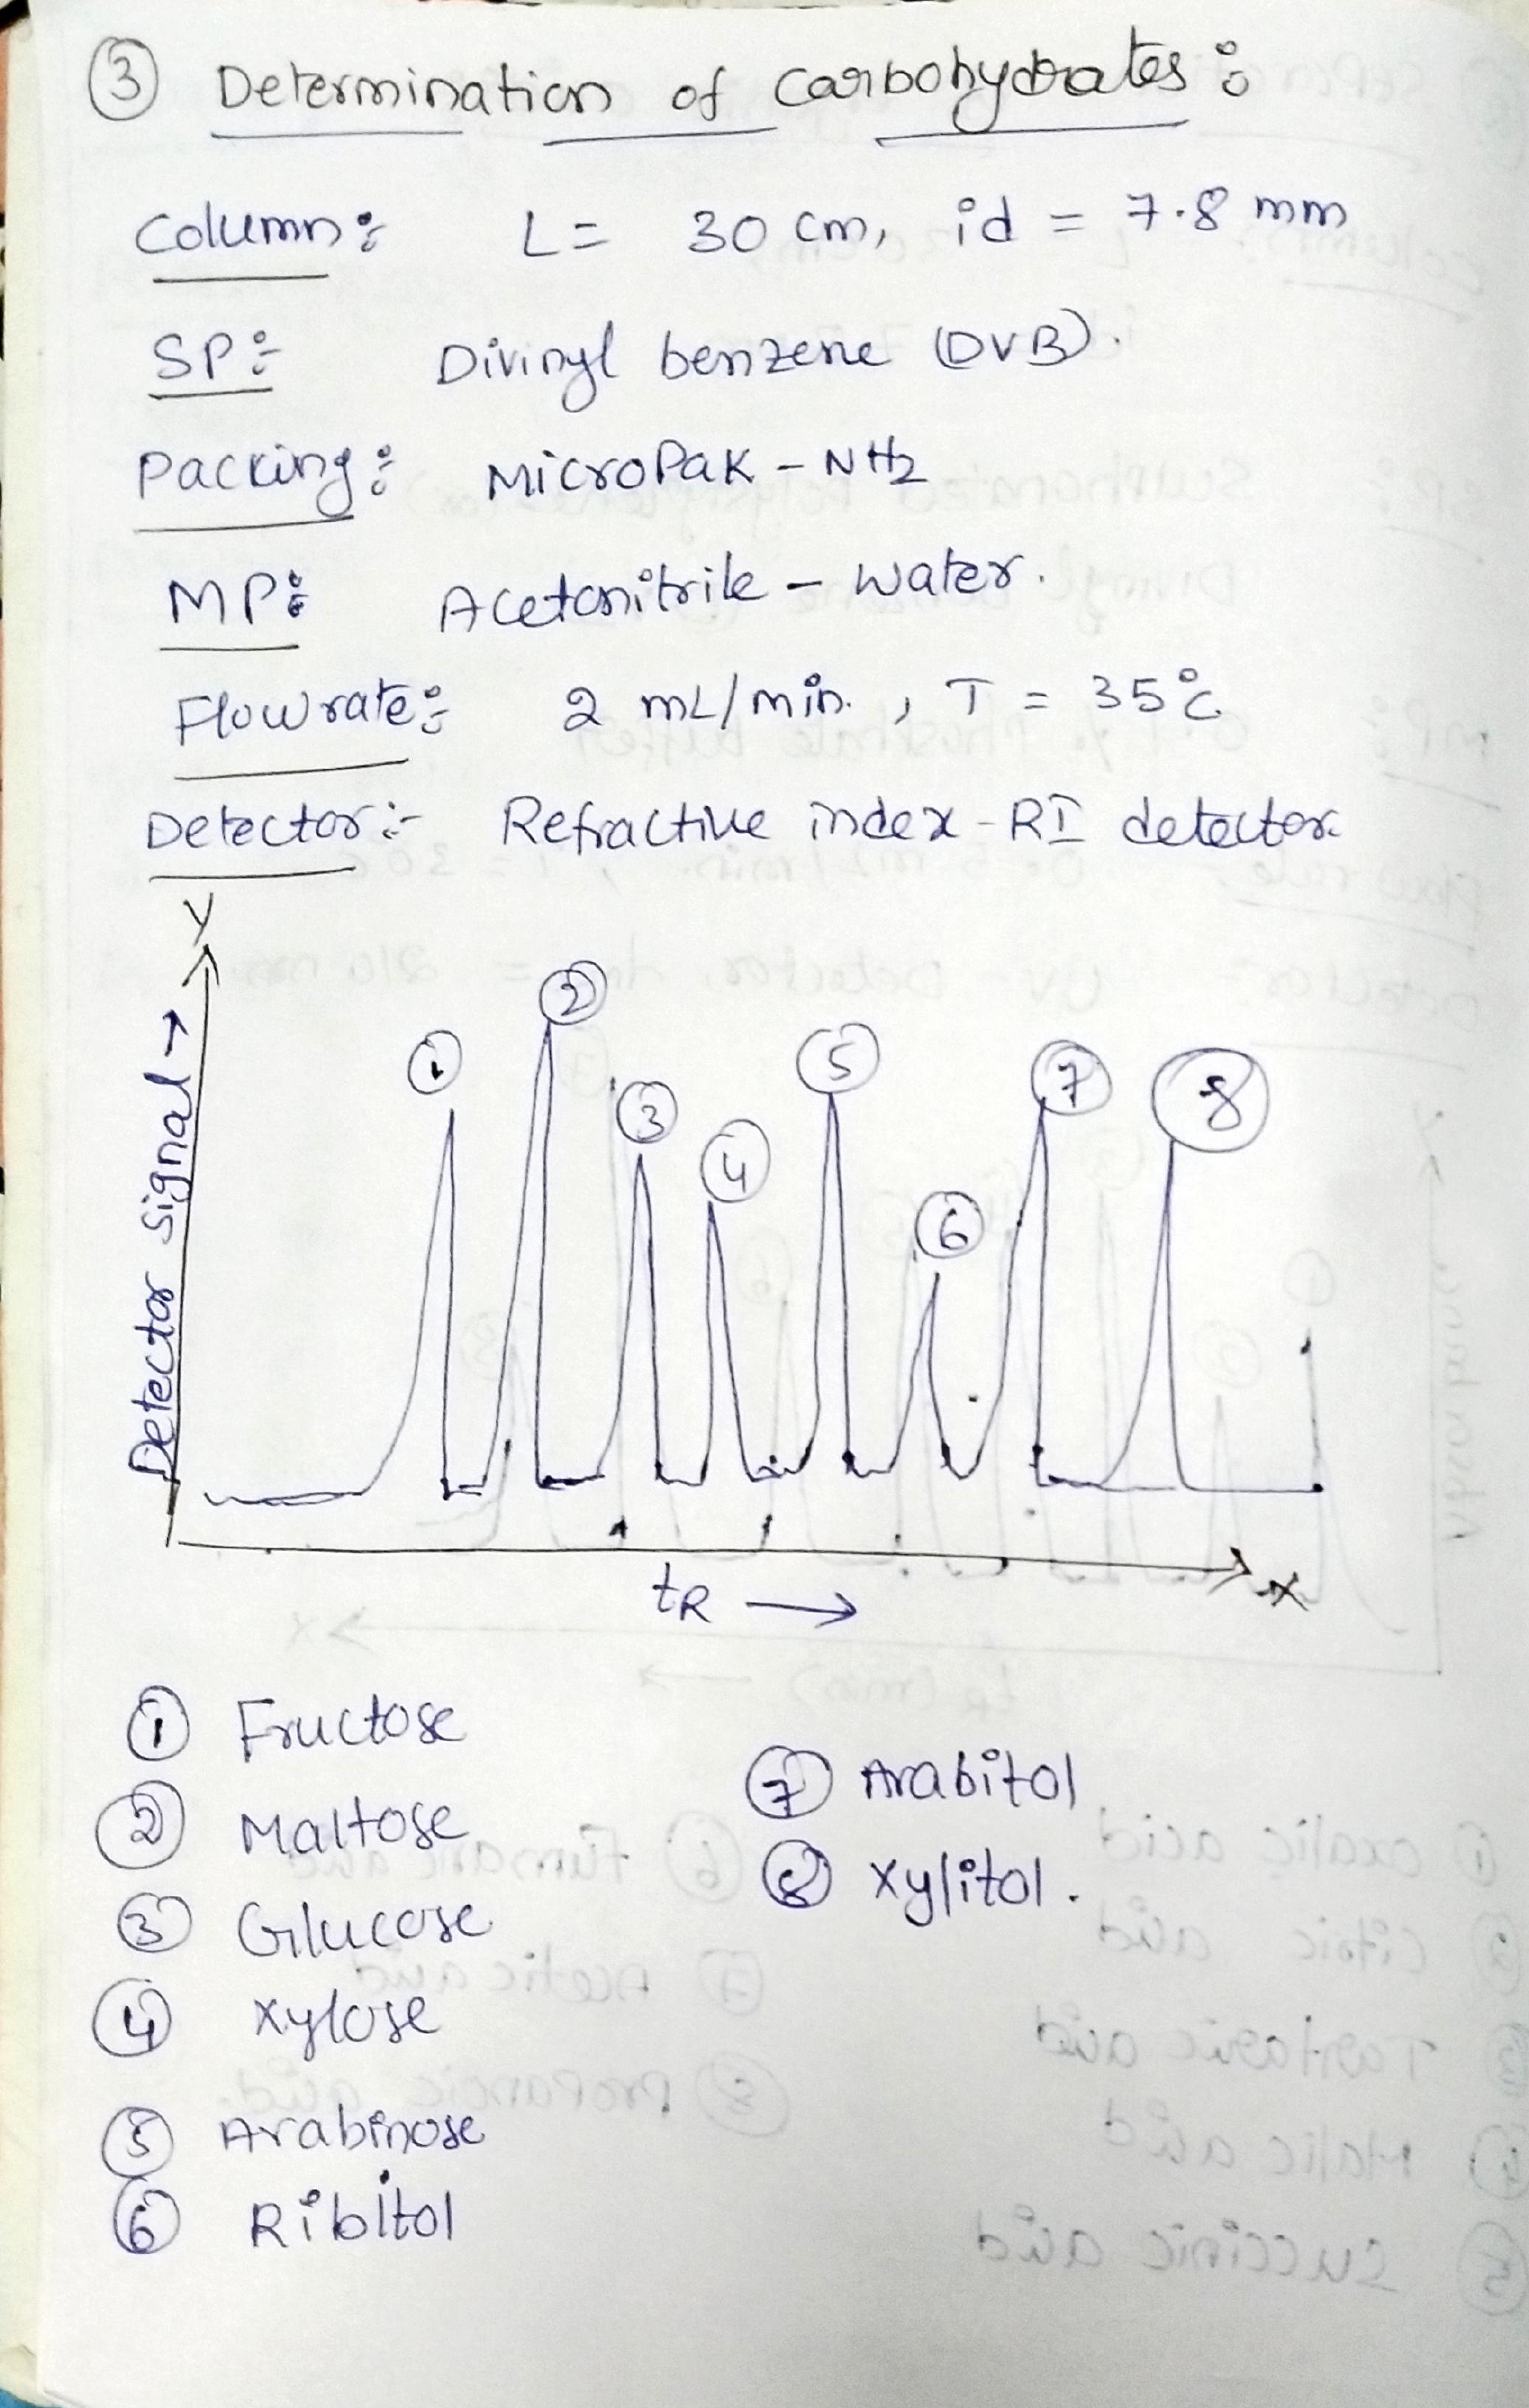 ③ Determination of Carbohydrates:
Column: L = 30 cm, id = 7.8 mm
SP:- Divinyl benzene (DVB).
Packing: MicroPak - NH2
MP: Acetonitrile - Water.
Flowrate:- 2 mL/min. , T = 35°C
Detector:- Refractive index - RI detector.
Y
Detector Signal →
① ② ③ ④ ⑤ ⑥ ⑦ ⑧
X
tR →
① Fructose
② Maltose
③ Glucose
④ Xylose
⑤ Arabinose
⑥ Ribitol
⑦ Arabitol
⑧ Xylitol.